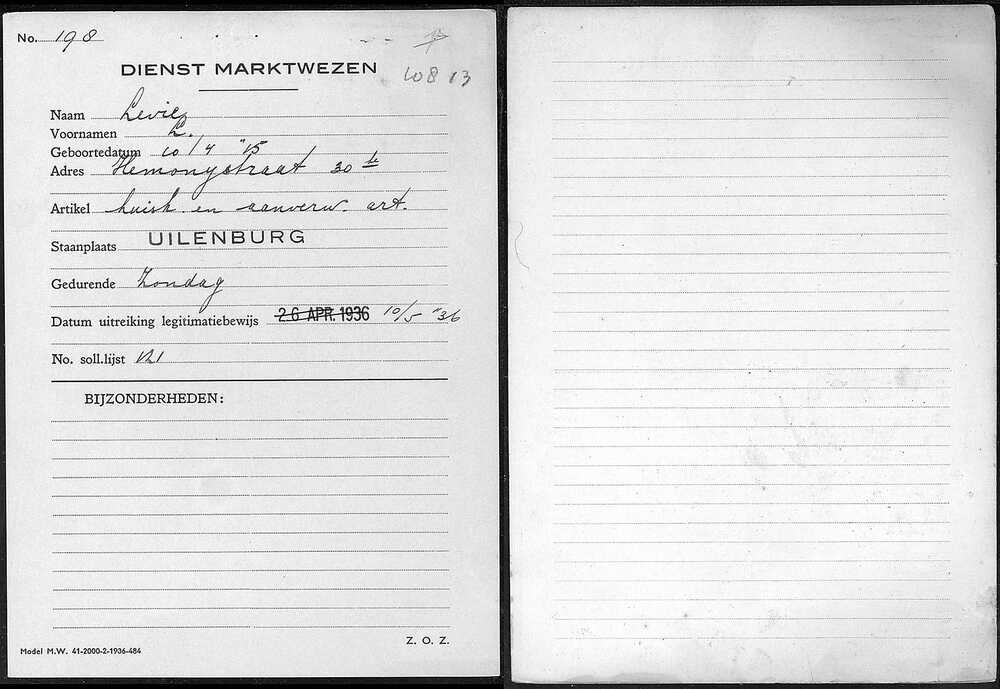 No. 198
10813
DIENST MARKTWEZEN
Naam Levie
Voornamen L.
Geboortedatum 10/4 "15
Adres Hemonystraat 30 hs
Artikel huish. en aanverw. art.
Staanplaats UILENBURG
Gedurende Zondag
Datum uitreiking legitimatiebewijs 26 APR. 1936 10/5 "36
No. soll.lijst 121
BIJZONDERHEDEN:
Z. O. Z.
Model M.W. 41-2000-2-1936-484